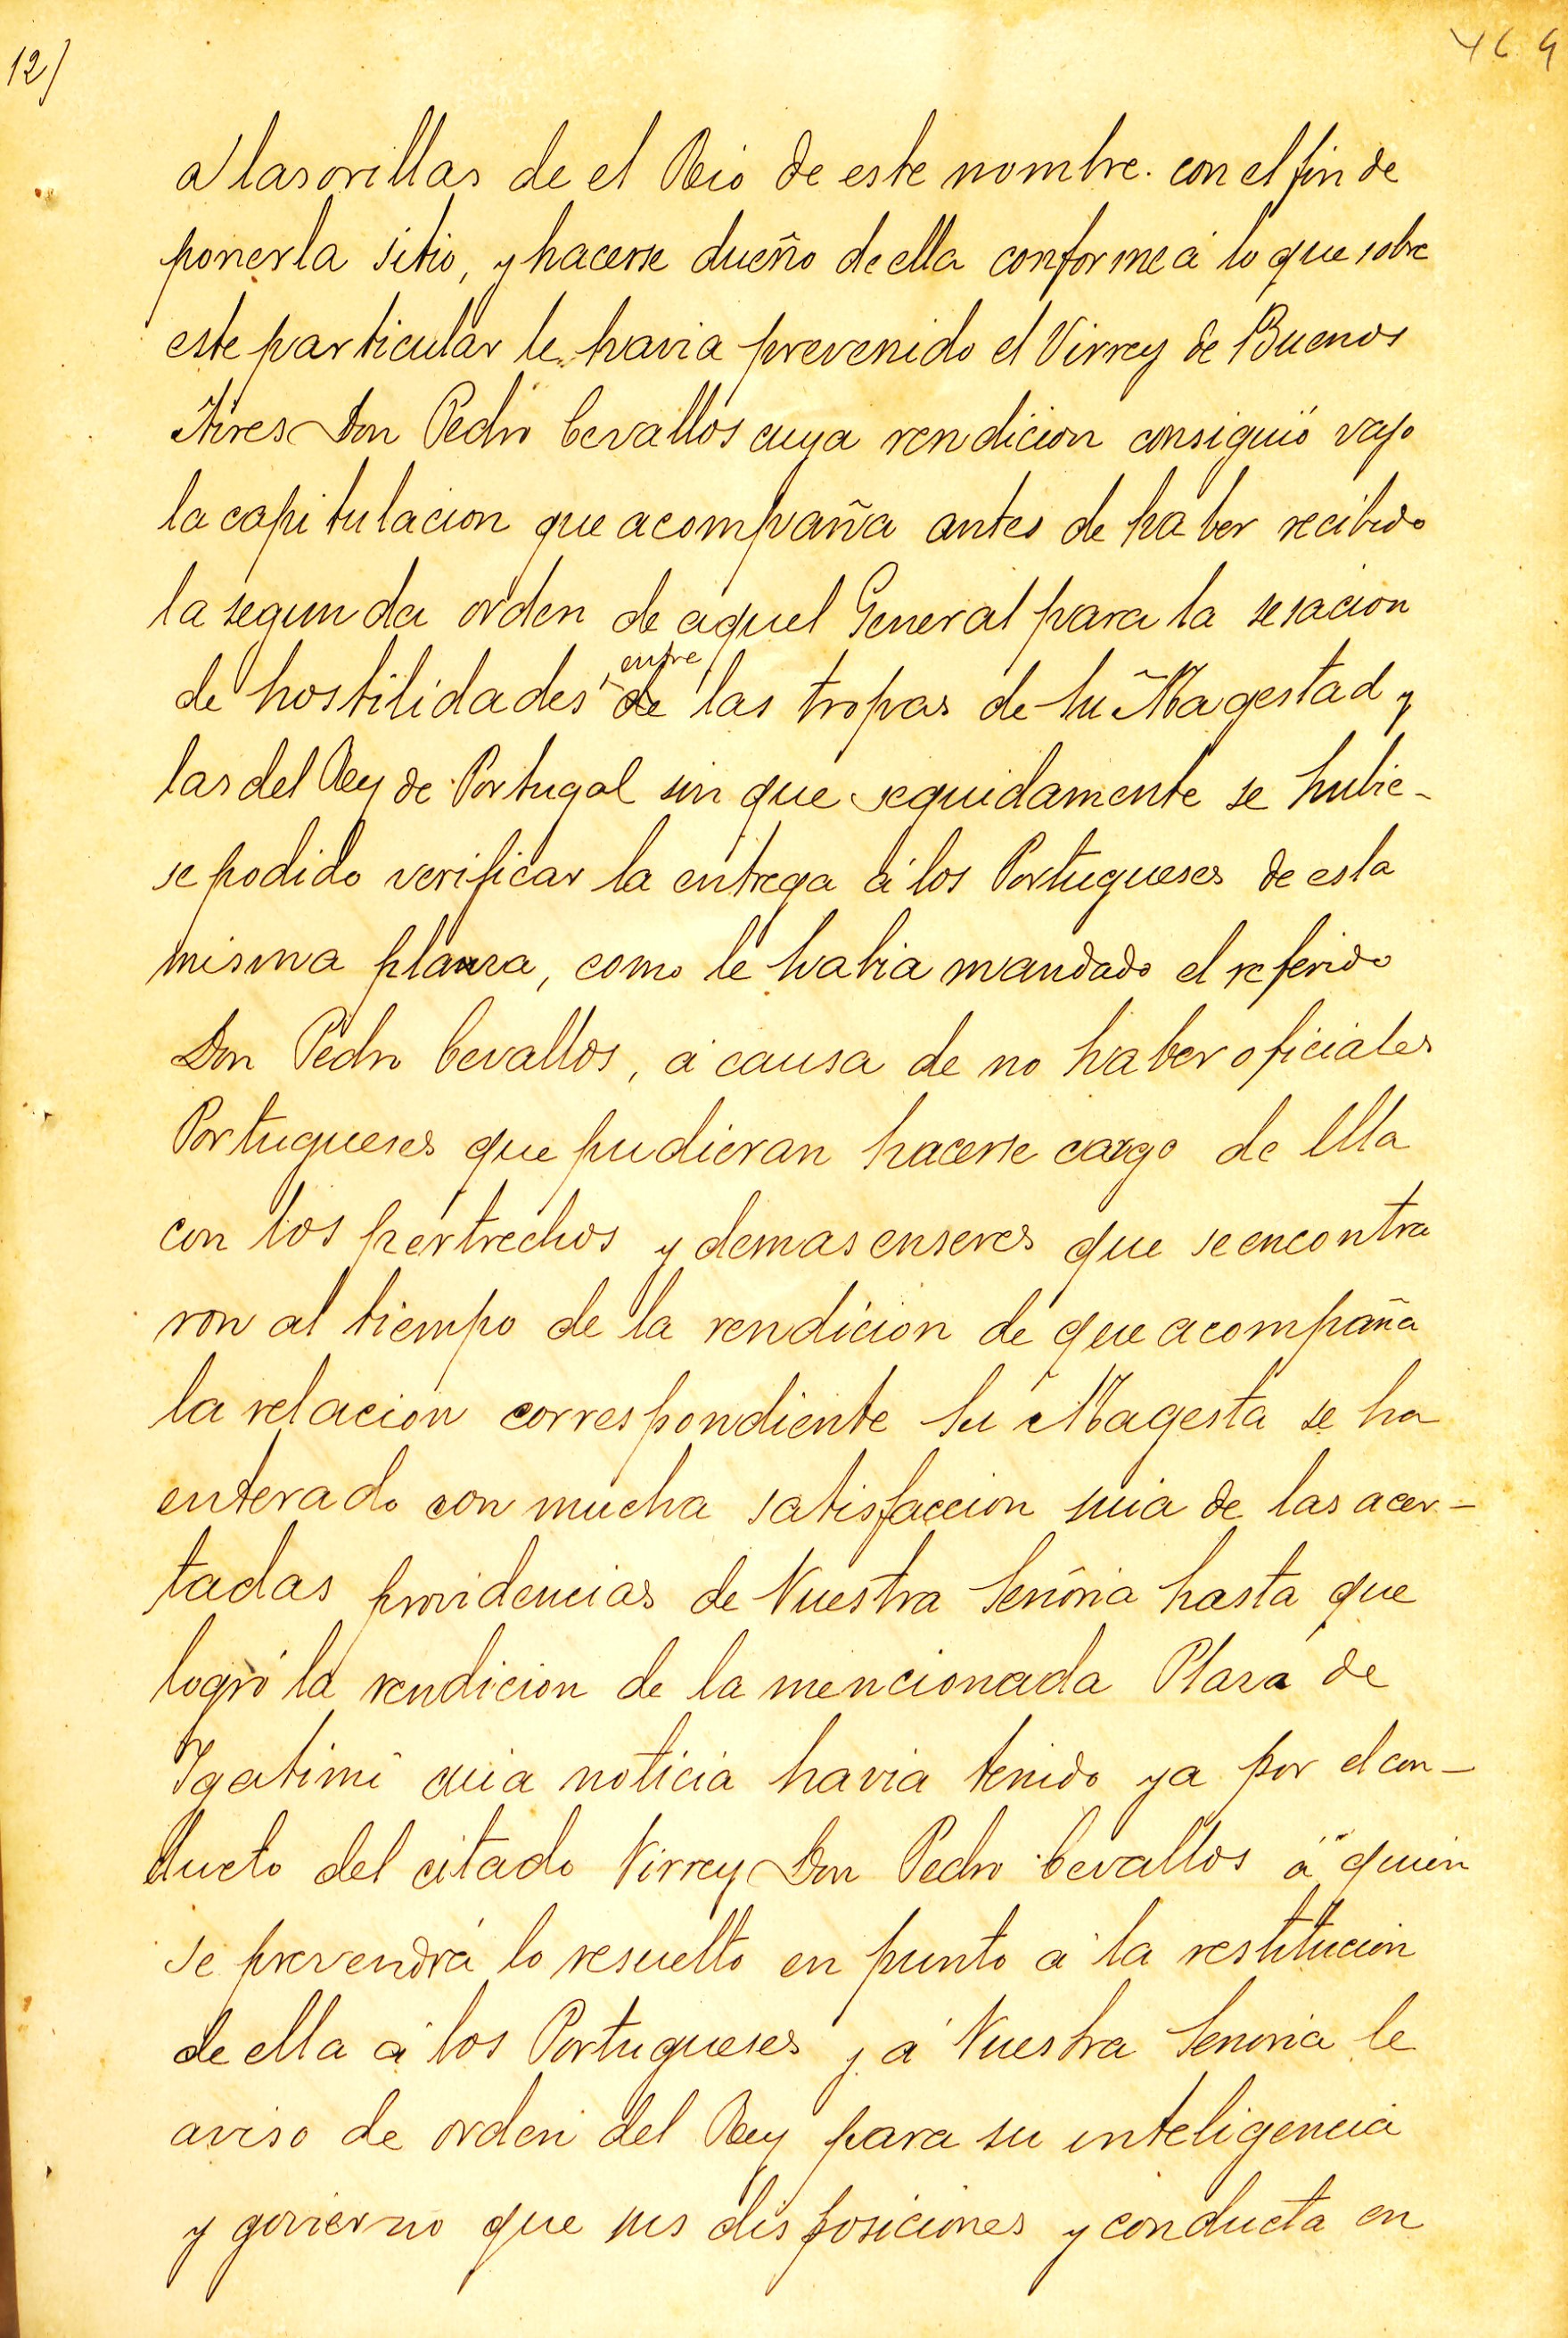 12)
469
a las orillas de el Rio de este nombre. con el fin de
ponerla sitio, y hacerse dueño de ella conforme á lo que sobre
este particular le havia prevenido el Virrey de Buenos
Aires Don Pedro Cevallos cuya rendicion consiguió vajo
la capitulacion que acompaña antes de haber recibido
la segunda orden de aquel General para la sesacion
entre
de hostilidades de las tropas de Su Magestad y
las del Rey de Portugal sin que seguidamente se hubie-
se podido verificar la entrega á los Portugueses de esta
misma plaza, como le habia mandado el referido
Don Pedro Cevallos, á causa de no haber oficiales
Portugueses que pudieran hacerse cargo de ella
con los pertrechos y demas enseres que se encontra
ron al tiempo de la rendicion de que acompaña
la relacion correspondiente Su Magesta se ha
enterado con mucha satisfaccion suia de las acer-
tadas providencias de Vuestra Señoria hasta que
logró la rendicion de la mencionada Plaza de
Igatimi cuia noticia havia tenido ya por el con-
ducto del citado Virrey Don Pedro Cevallos á quien
se prevendrá lo resuelto en punto á la restitucion
de ella á los Portugueses y á Vuestra Senoria le
aviso de orden del Rey para su inteligencia
y govierno que sus disposiciones y conducta en